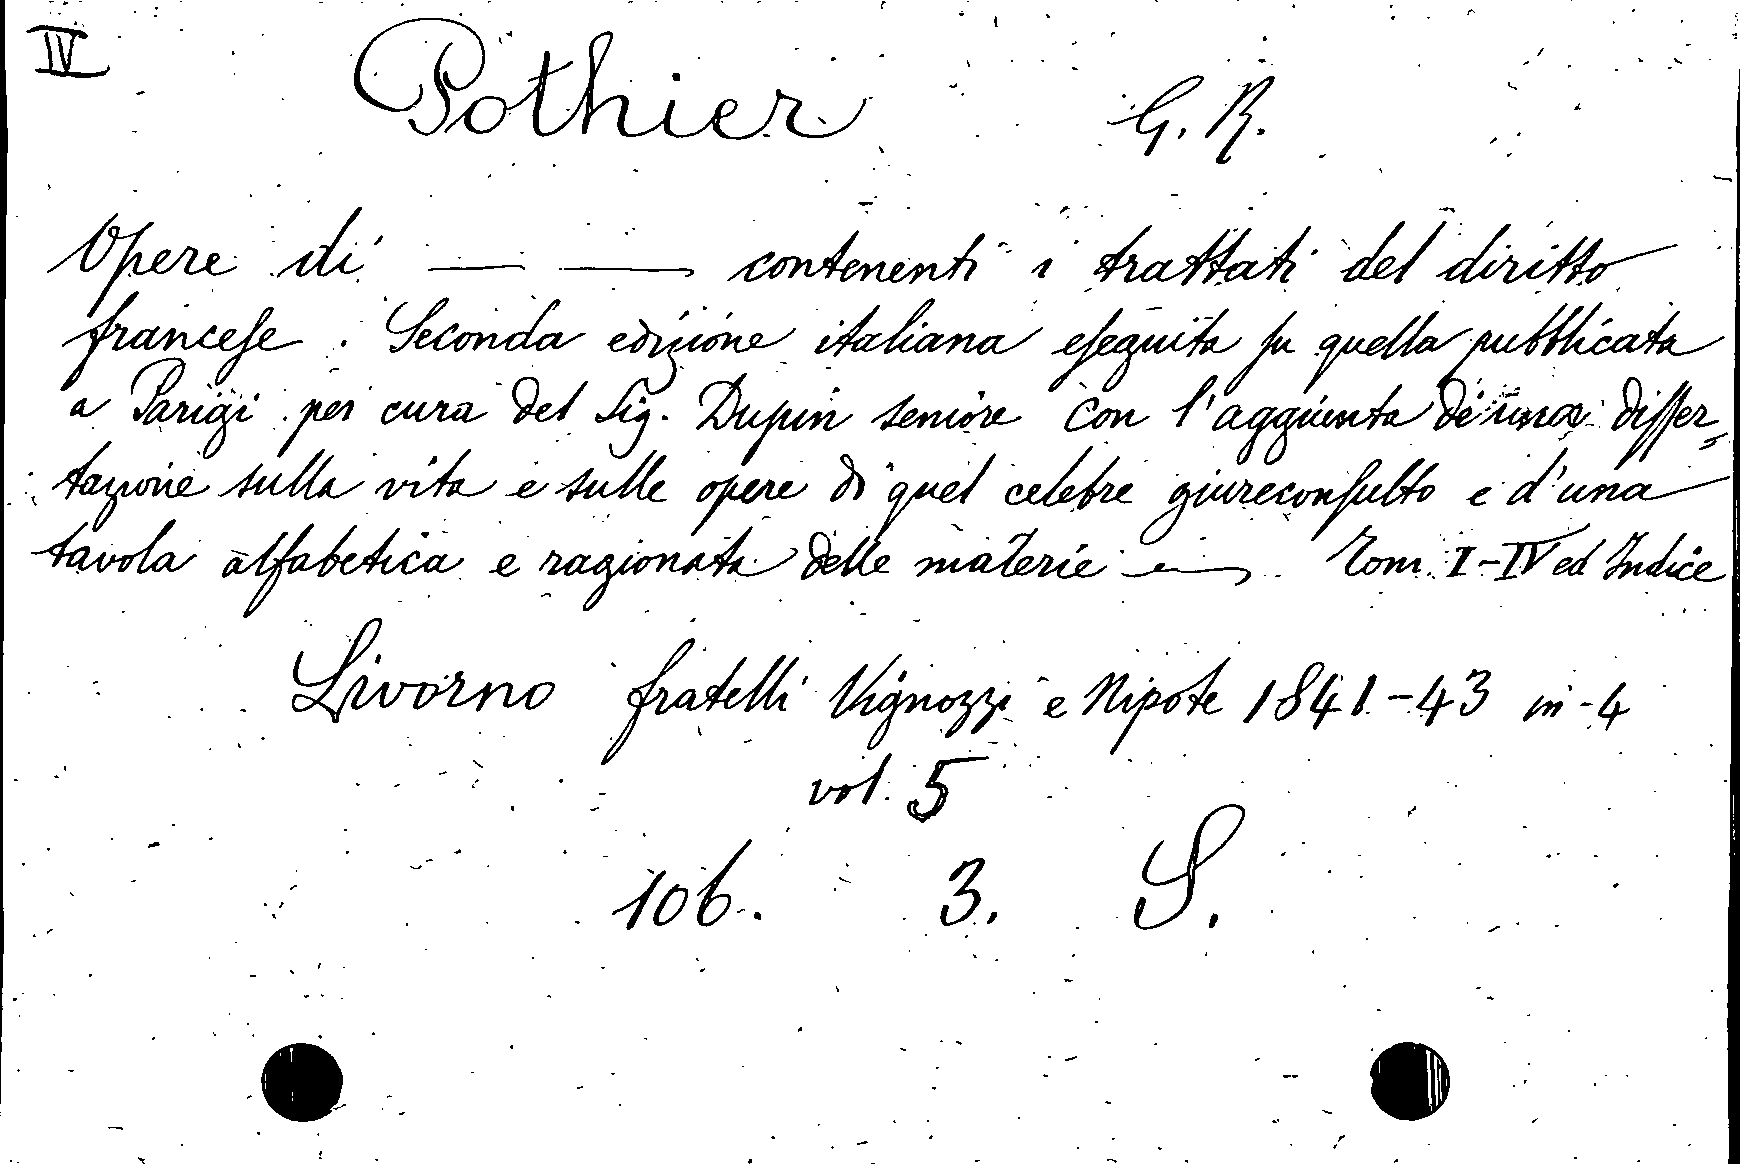 IV
Pothier G. R.
Opere di — — contenenti i trattati del diritto
franceſe. Seconda edizione italiana eſeguita ſu quella pubblicata
a Parigi per cura del Sig. Dupin seniore con l'aggiunta di una diſſer=
tazione sulla vita e sulle opere di quel celebre giureconſulto e d'una
tavola alfabetica e ragionata delle materie — Tom. I-IV ed Indice
Livorno fratelli Vignozzi e Nipote 1841-43 in-4
vol. 5
106. 3. S.